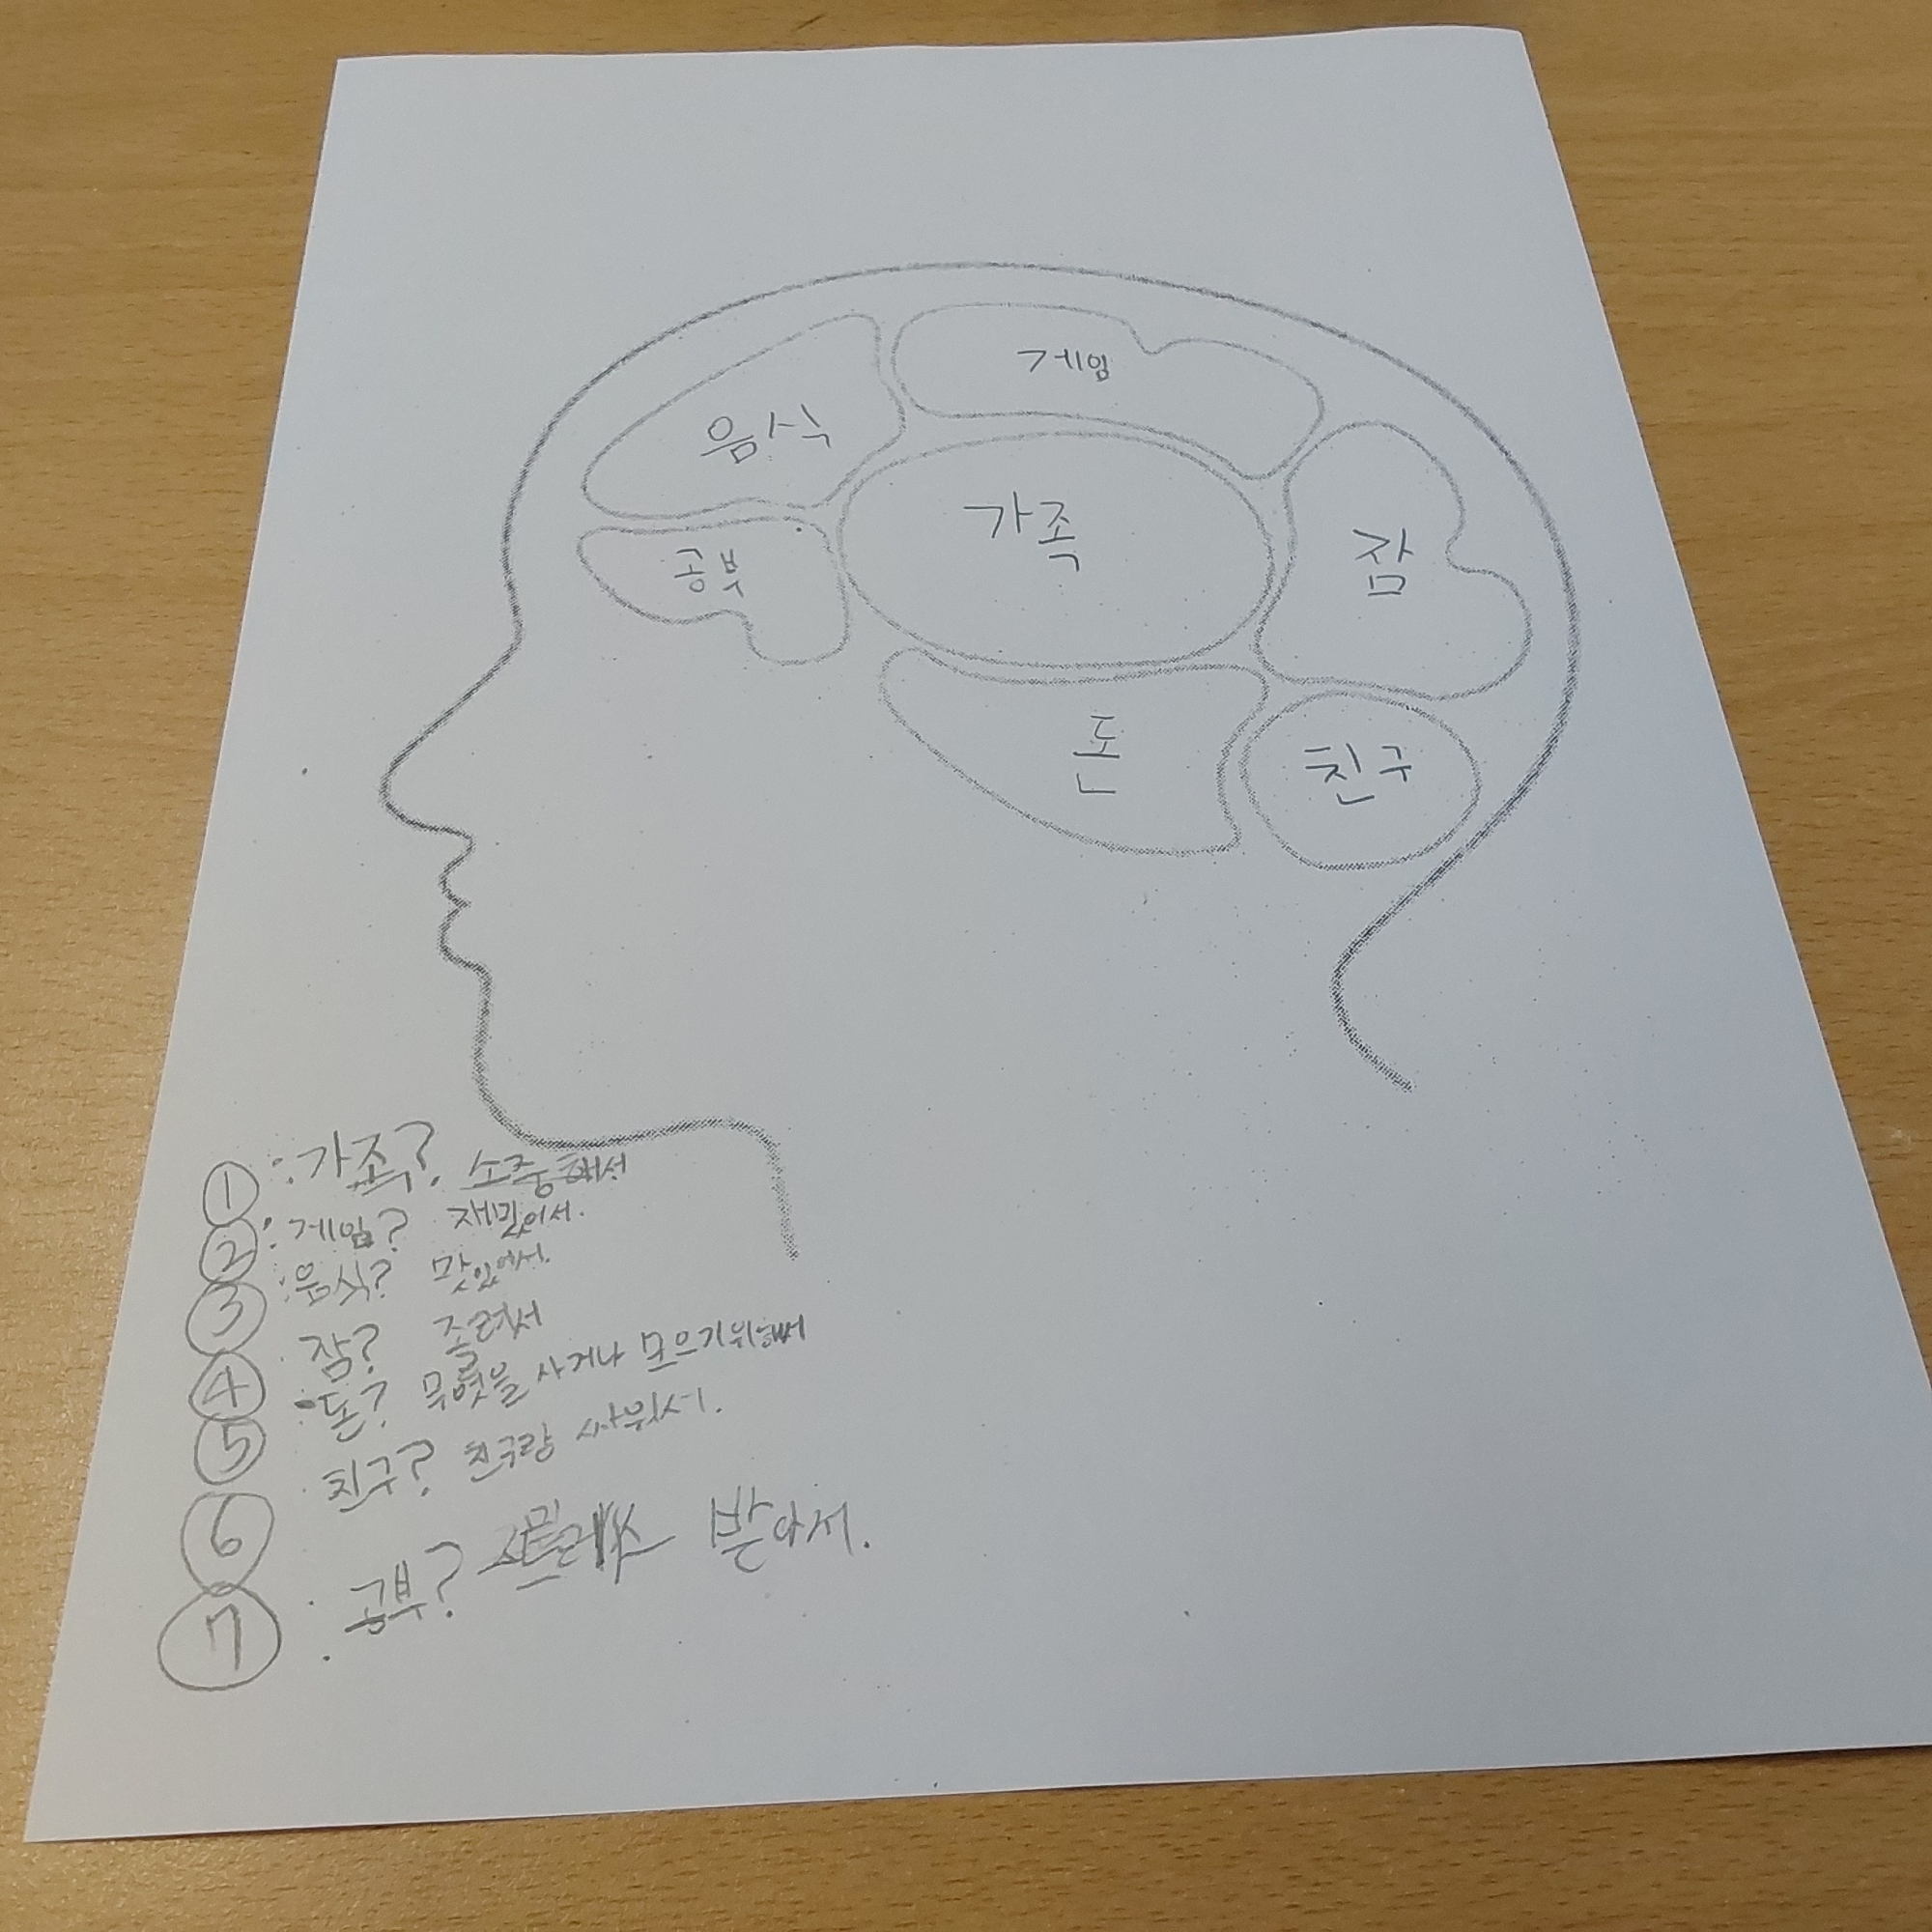 게임
음식
가족
공부
잠
돈
친구
① : 가족? 소중해서
② : 게임? 재밌어서.
③ : 음식? 맛있어서.
④ : 잠? 졸려서
⑤ : 돈? 무엇을 사거나 모으기위해
⑥ : 친구? 친구랑 싸워서.
⑦ : 공부? 스트레스 받아서.